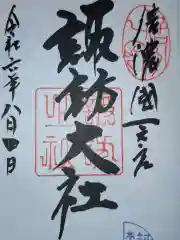 信濃國一之宮
諏訪大社
令和六年八月四日